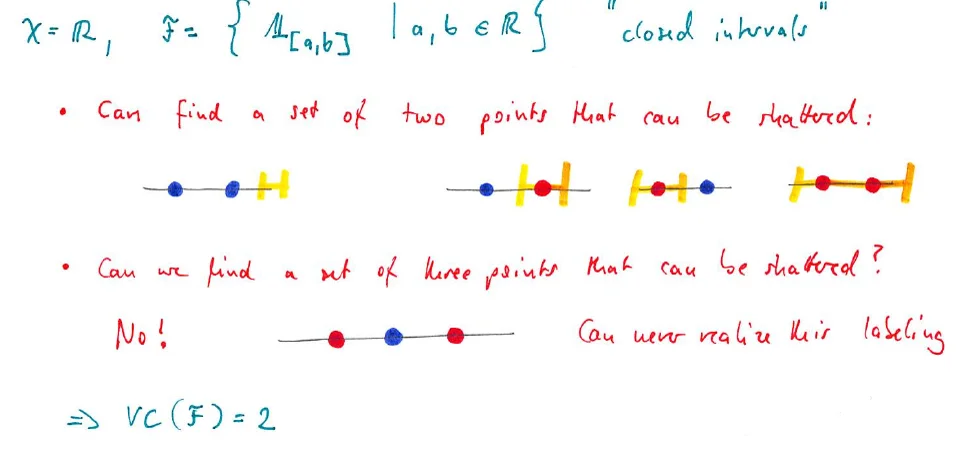 X = ℝ, F = { 𝟙[a,b] | a, b ∈ ℝ } "closed intervals"
• Can find a set of two points that can be shattered:
• Can we find a set of three points that can be shattered?
No! Can never realize this labeling
⇒ VC(F) = 2